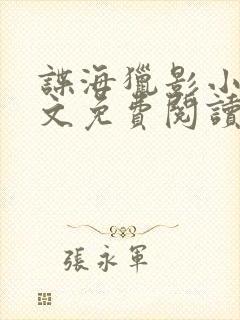 諜海獵影小
文免費閱讀
張永軍